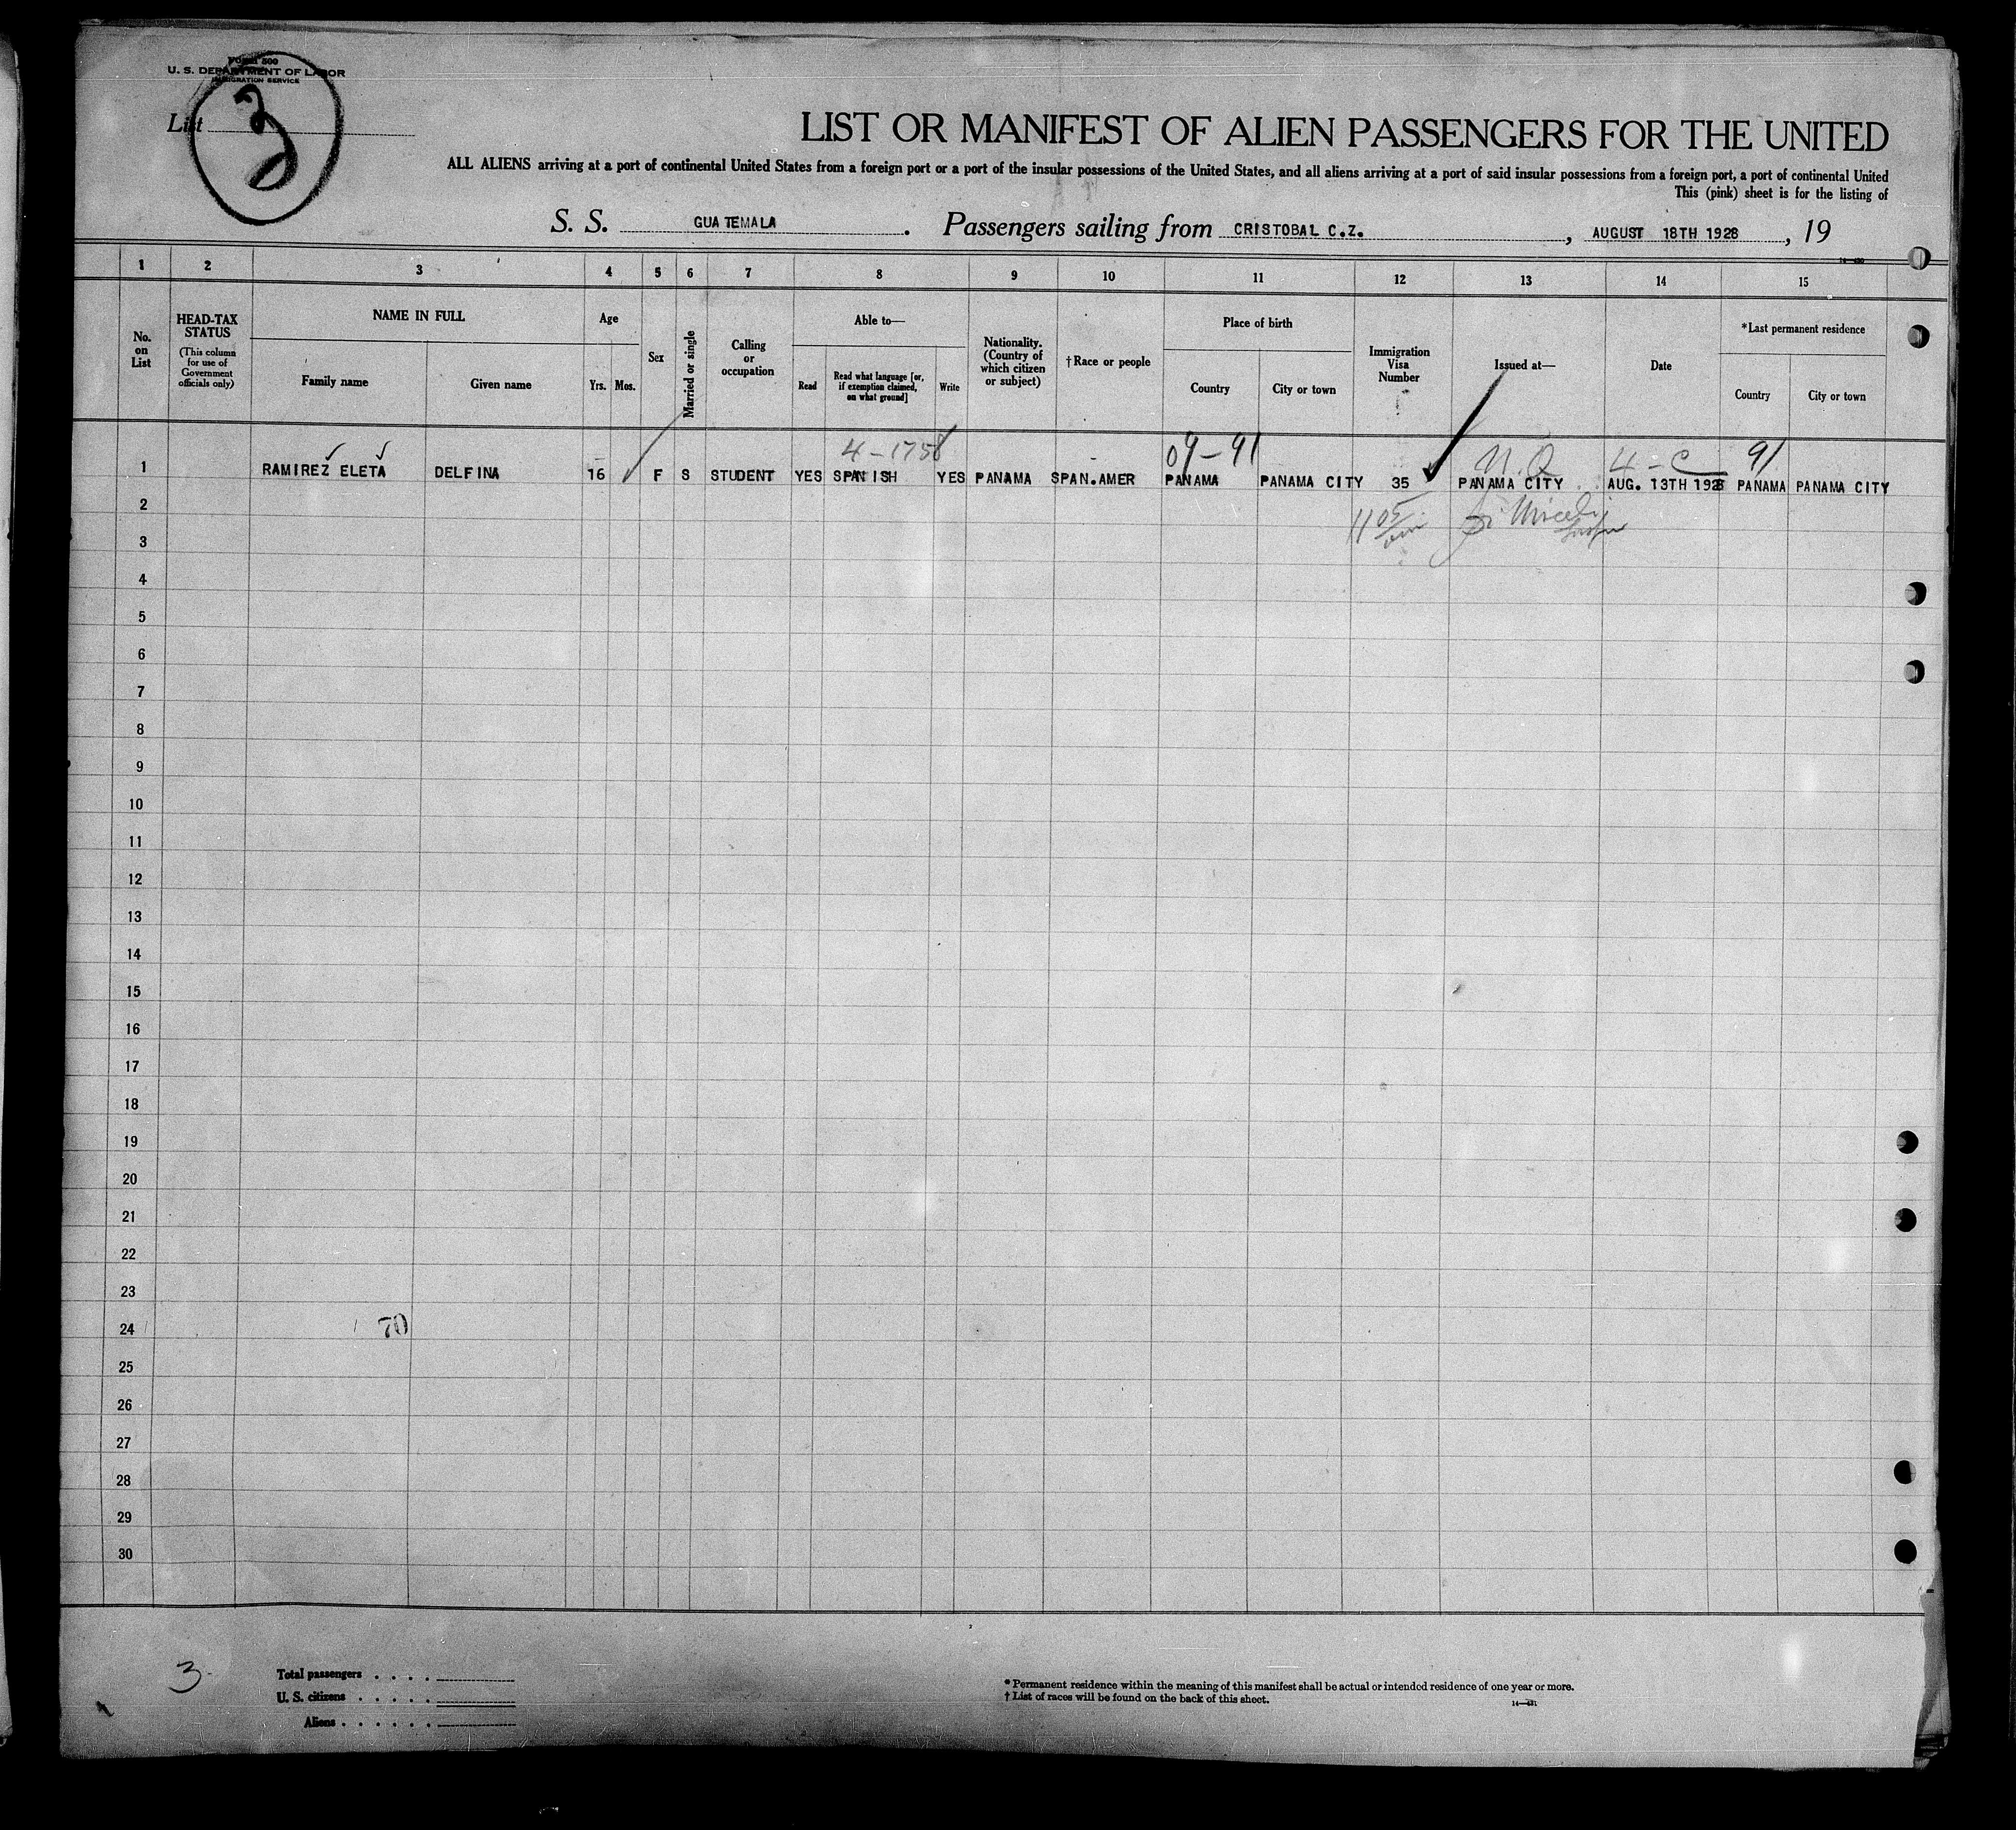 FORM 500
U. S. DEPARTMENT OF LABOR
IMMIGRATION SERVICE
List
3
LIST OR MANIFEST OF ALIEN PASSENGERS FOR THE UNITED
ALL ALIENS arriving at a port of continental United States from a foreign port or a port of the insular possessions of the United States, and all aliens arriving at a port of said insular possessions from a foreign port, a port of continental United
This (pink) sheet is for the listing of
S. S. GUATEMALA. Passengers sailing from CRISTOBAL C.Z., AUGUST 18TH 1928, 19
1 2 3 4 5 6 7 8 9 10 11 12 13 14 15
No. on List
HEAD-TAX STATUS
(This column for use of Government officials only)
NAME IN FULL
Family name
Given name
Age
Yrs. Mos.
Sex
Married or single
Calling or occupation
Able to—
Read
Read what language [or, if exemption claimed, on what ground]
Write
Nationality. (Country of which citizen or subject)
†Race or people
Place of birth
Country
City or town
Immigration Visa Number
Issued at—
Date
*Last permanent residence
Country
City or town
4-1758 09-91 N.Q 4-C 91
1 RAMIREZ ELETA DELFINA 16 F S STUDENT YES SPANISH YES PANAMA SPAN.AMER PANAMA PANAMA CITY 35 PANAMA CITY AUG. 13TH 1928 PANAMA PANAMA CITY
2
3
4
5
6
7
8
9
10
11
12
13
14
15
16
17
18
19
20
21
22
23
24 70
25
26
27
28
29
30
3
Total passengers . . . .
U. S. citizens . . . . .
Aliens . . . . . .
* Permanent residence within the meaning of this manifest shall be actual or intended residence of one year or more.
† List of races will be found on the back of this sheet.